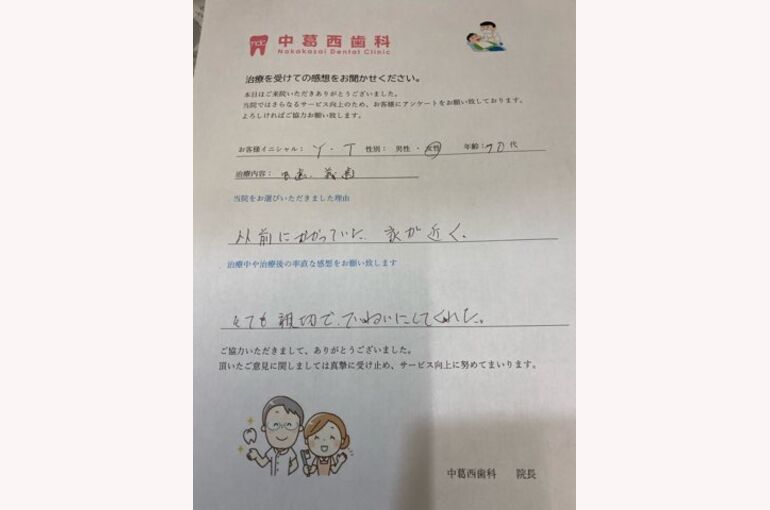 ndc 中葛西歯科
Nakakasai Dental Clinic
治療を受けての感想をお聞かせください。
本日はご来院いただきありがとうございました。
当院ではさらなるサービス向上のため、お客様にアンケートをお願い致しております。
よろしければご協力お願い致します。
お客様イニシャル： Y・T 性別： 男性 ・ 女性 年齢：70代
治療内容： 義歯
当院をお選びいただきました理由
以前にかかっていた 家が近く。
治療中や治療後の率直な感想をお願い致します
とても親切で、ていねいにしてくれた。
ご協力いただきまして、ありがとうございました。
頂いたご意見に関しましては真摯に受け止め、サービス向上に努めてまいります。
中葛西歯科 院長